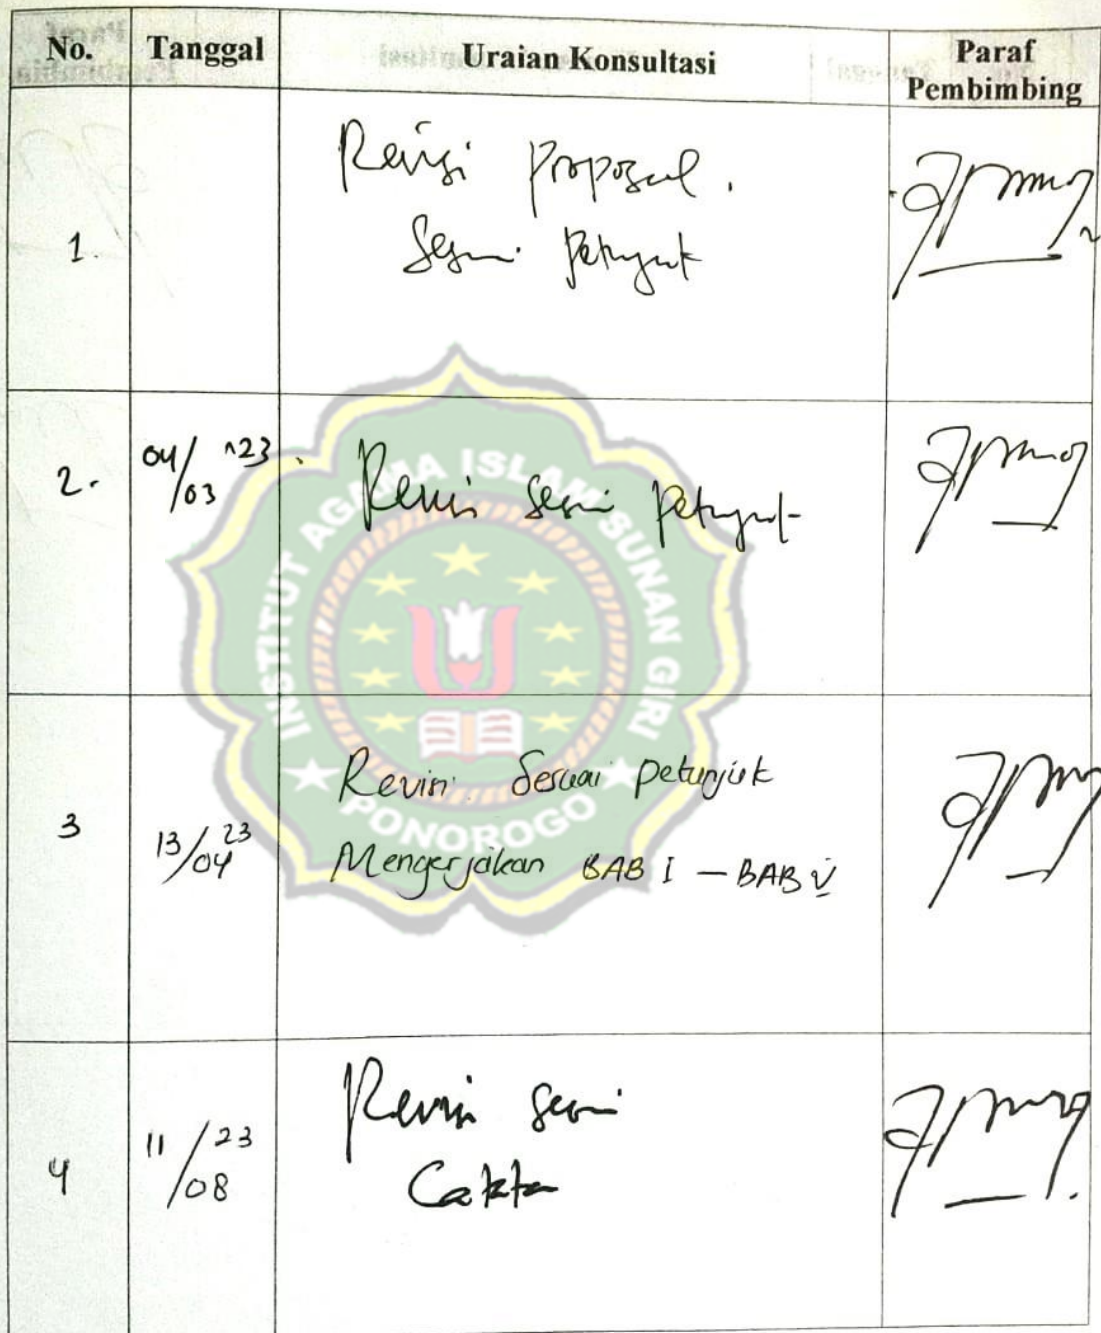 No. Tanggal Uraian Konsultasi Paraf Pembimbing
1. Revisi Proposal.
Sesuai Petunjuk
2. 04/03 23 Revisi sesuai Petunjuk
3 13/04 23 Revisi Sesuai petunjuk
Mengerjakan BAB I - BAB V
4 11/08 23 Revisi sesuai
Catatan
INSTITUT AGAMA ISLAM SUNAN GIRI
PONOROGO